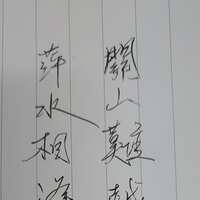 關山難越
萍水相逢